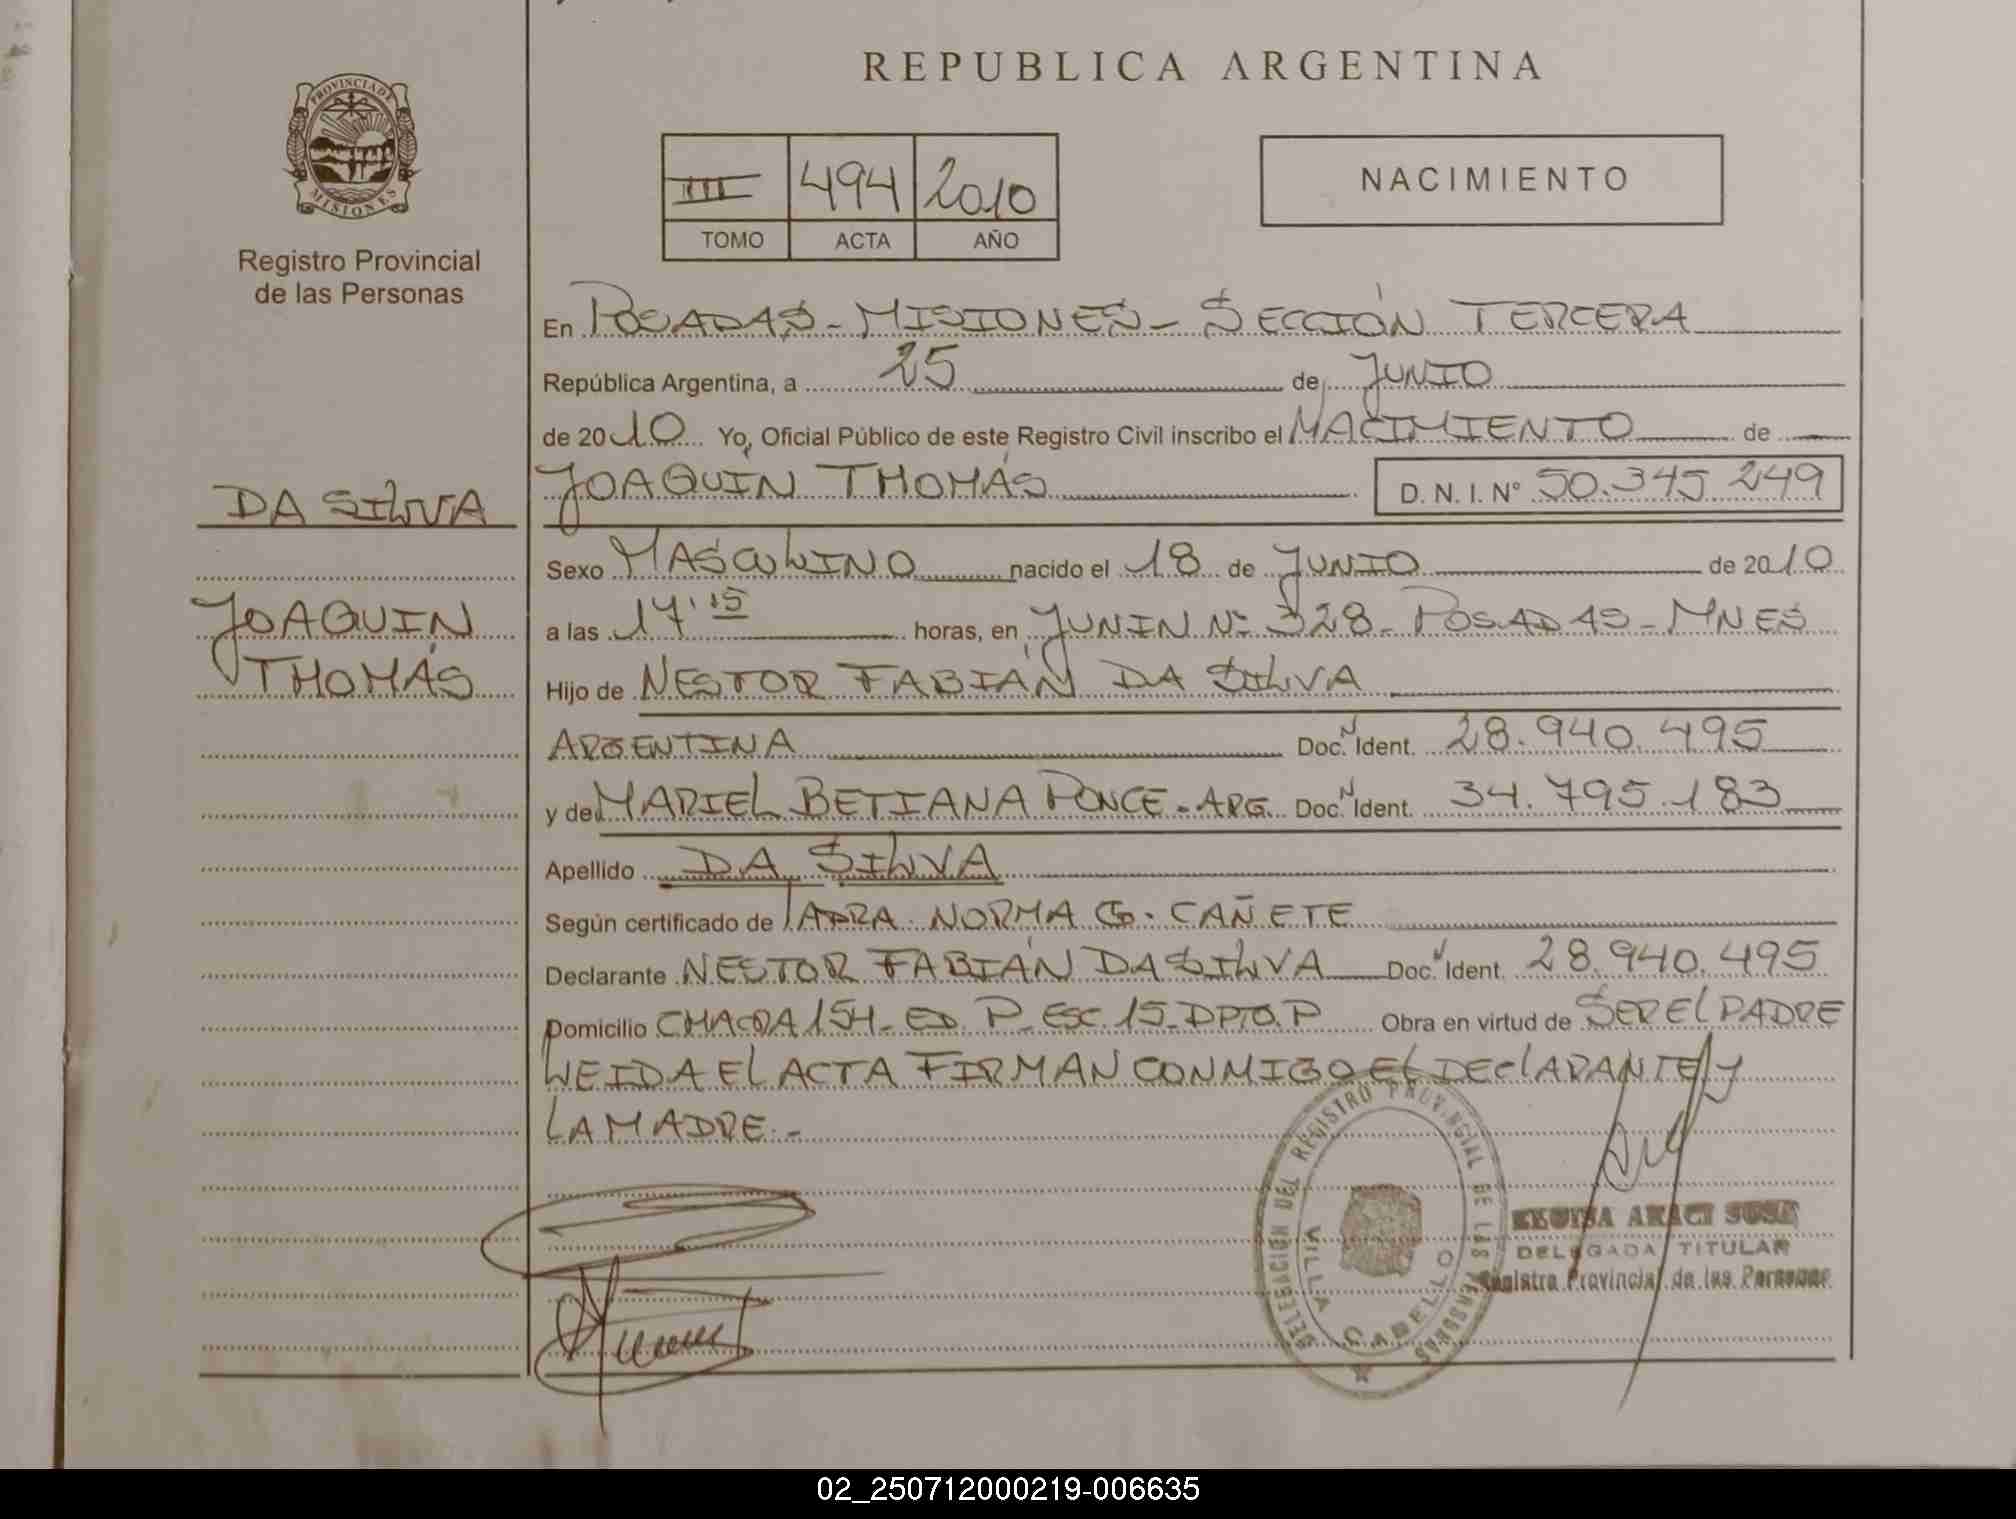 REPUBLICA ARGENTINA
PROVINCIA DE
MISIONES
Registro Provincial
de las Personas
III 494 2010
TOMO ACTA AÑO
NACIMIENTO
En POSADAS - MISIONES - SECCIÓN TERCERA
República Argentina, a 25 de JUNIO
de 2010 Yo, Oficial Público de este Registro Civil inscribo el NACIMIENTO de
JOAQUÍN THOMÁS D.N.I.Nº 50.345.249
DA SILVA
Sexo MASCULINO nacido el 18 de JUNIO de 2010
JOAQUÍN
THOMÁS
a las 17'15 horas, en JUNIN Nº 328 - POSADAS - MNES
Hijo de NESTOR FABIÁN DA SILVA
ARGENTINA Doc. N Ident. 28.940.495
y de MARIEL BETIANA PONCE - ARG. Doc. N Ident. 34.795.183
Apellido DA SILVA
Según certificado de NORMA G. CAÑETE
Declarante NESTOR FABIÁN DA SILVA Doc. N Ident. 28.940.495
Domicilio CHACRA 154 - ED. P - ESC. 15 - DPTO. P Obra en virtud de SER EL PADRE
LEIDA EL ACTA FIRMAN CONMIGO EL DECLARANTE Y
LA MADRE. -
DELEGACION DEL REGISTRO PROVINCIAL DE LAS PERSONAS
VILLA CABELLO
DELEGADA TITULAR
Registro Provincial de las Personas
02_250712000219-006635